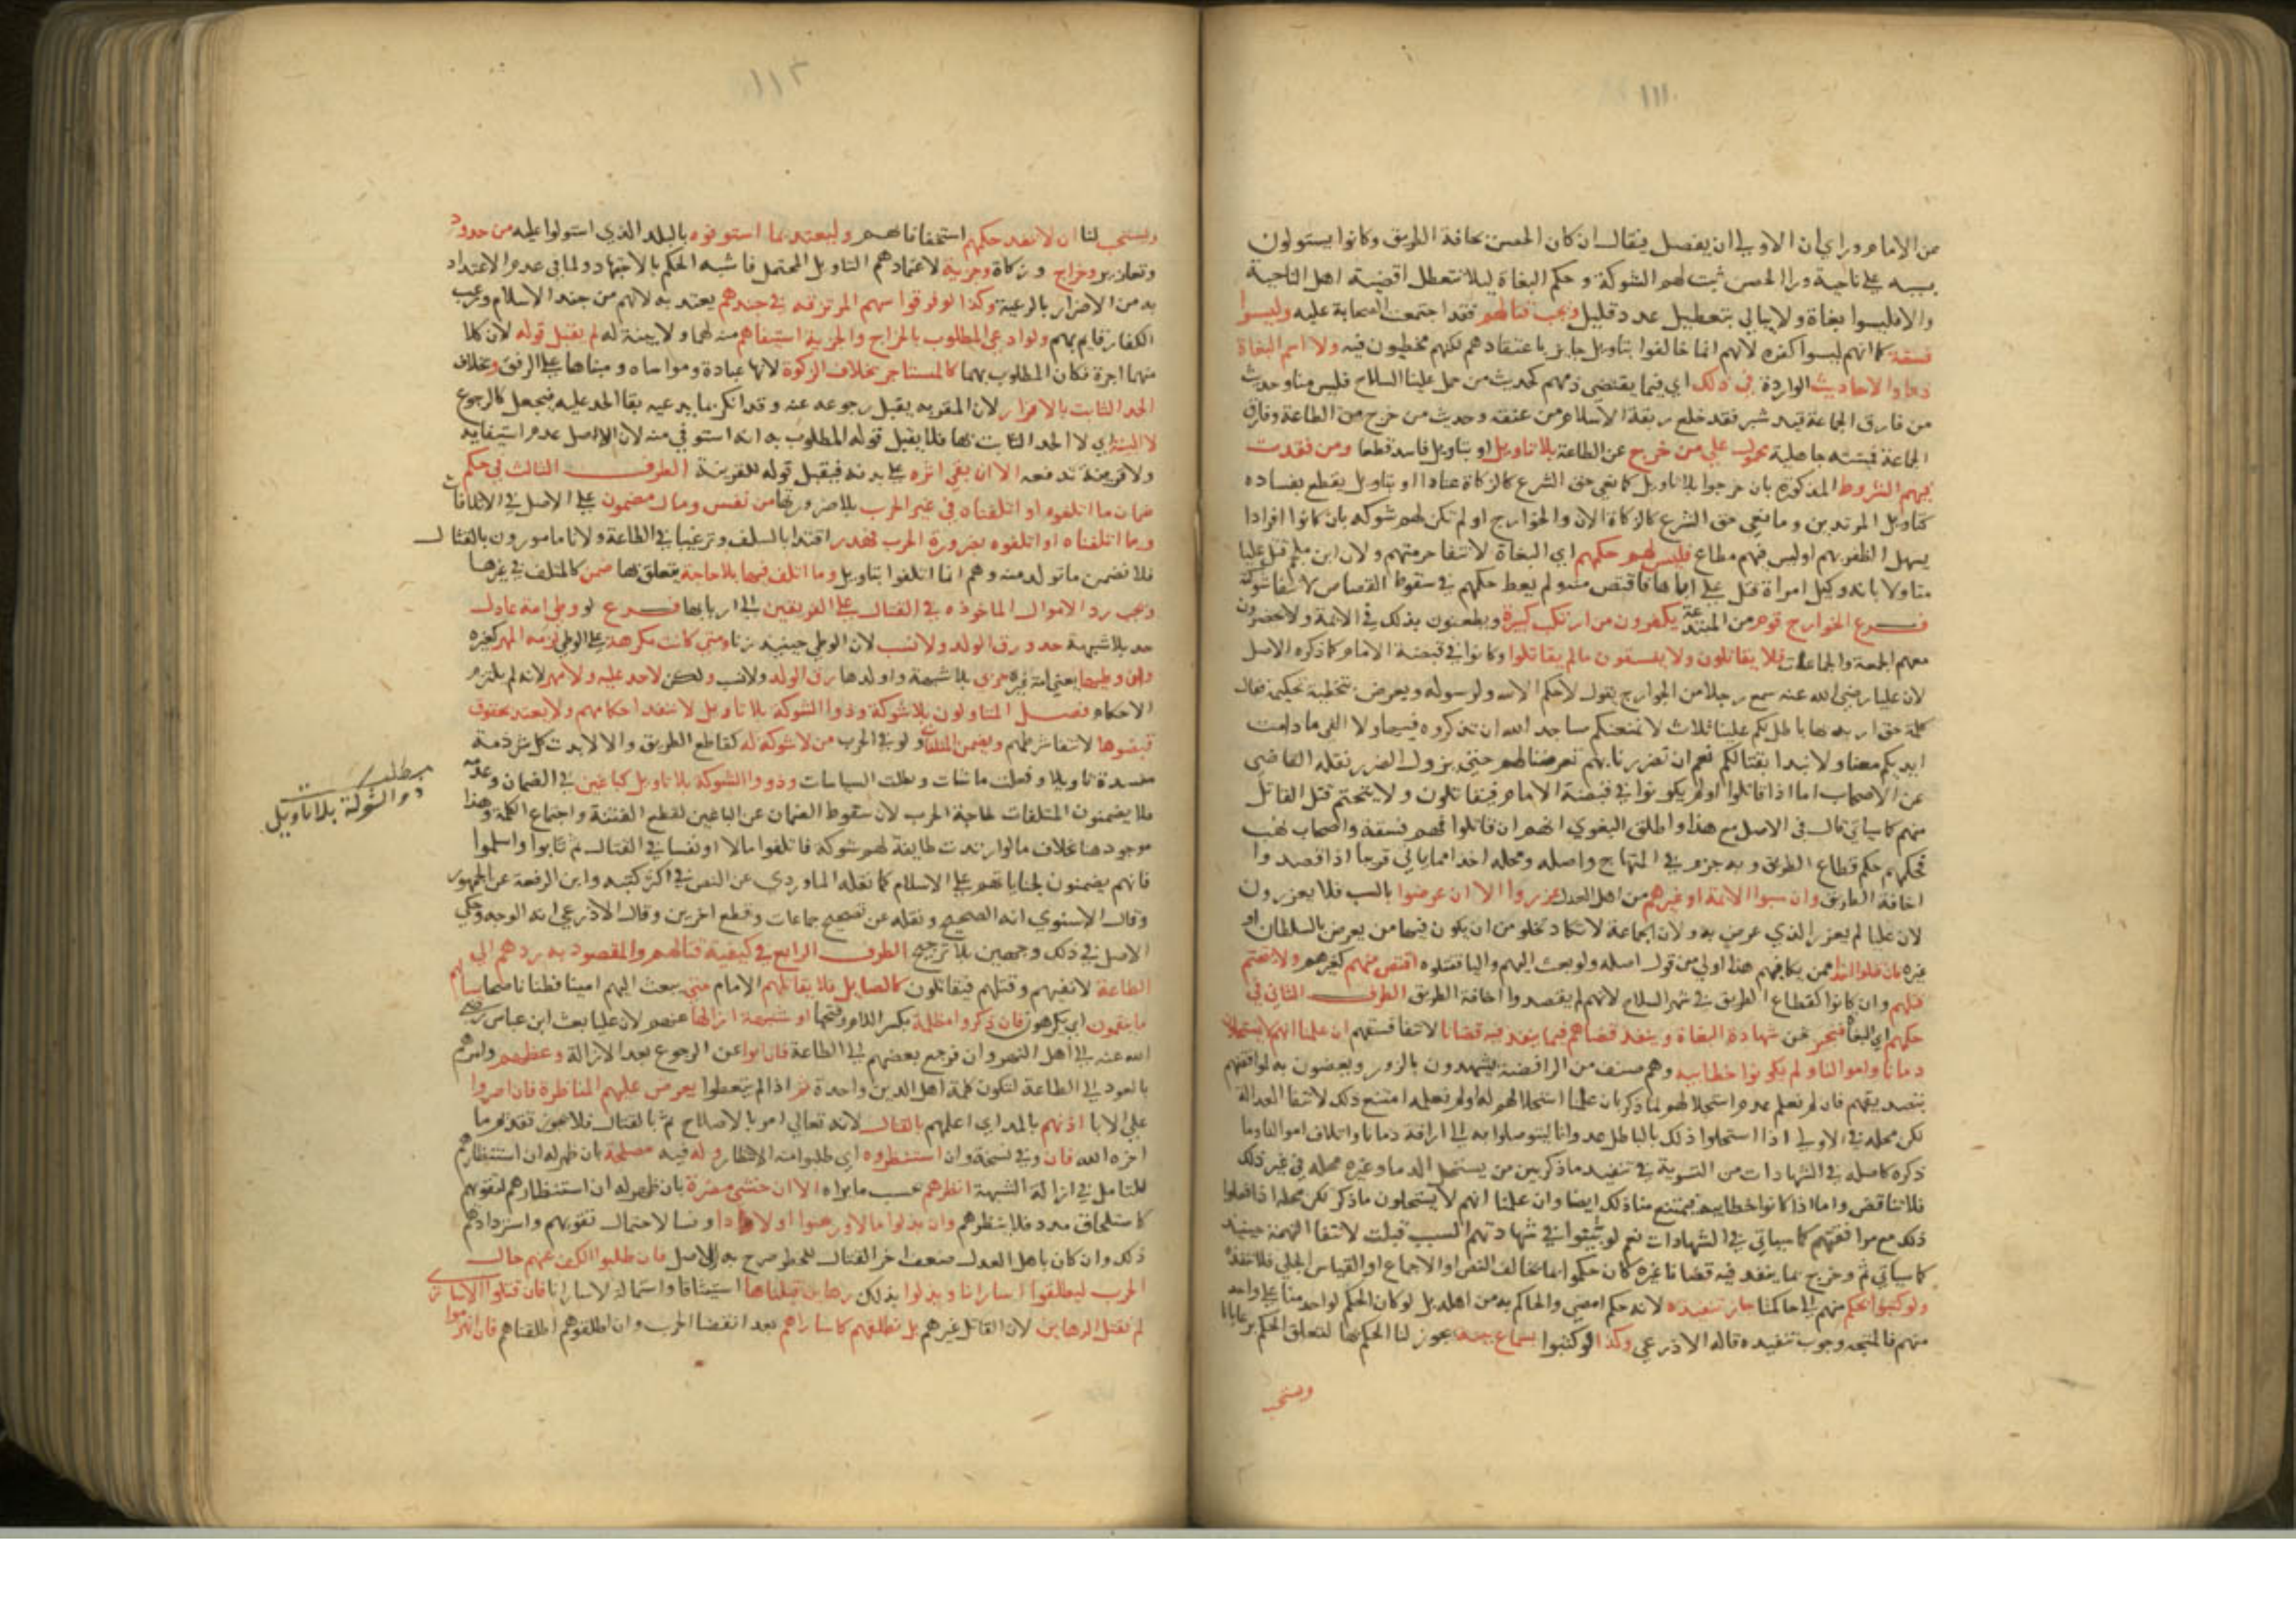 ١١١
من الامام وراي ان الاولي ان يفصل فيقال ان كان الحصن بحافة الطريق وكانوا يستولون
بسببه علي ناحية ورا الحصن ثبت لهم الشوكة وحكم البغاة ليلا تتعطل اقضية اهل الناحية
والا فليسوا بغاة ولا يبالي بتعطيل عدد قليل ويجب قتالهم فقد اجتمعت الصحابة عليه وليسوا
فسقة كما انهم ليسوا كفره لانهم انما خالفوا بتاويل جايز باعتقادهم لكنهم مخطيون فيه ولا اسم البغاة
ذما والاحاديث الواردة في ذلك اي فيما يقتضي ذمهم كحديث من حمل علينا السلاح فليس منا وحديث
من فارق الجماعة قيد شبر فقد خلع ربقة الاسلام من عنقه وحديث من خرج من الطاعة وفارق
الجماعة فميتته جاهلية محمول علي من خرج عن الطاعة بلا تاويل او بتاويل فاسد قطعا ومن فقدت
فيهم الشروط المذكورة بان خرجوا بلا تاويل كمانعي حق الشرع كالزكاة عنادا او بتاويل يقطع بفساده
كتاويل المرتدين ومانعي حق الشرع كالزكاة الان والخوارج او لم تكن لهم شوكه بان كانوا افرادا
يسهل الظفر بهم او ليس فيهم مطاع فليس لهم حكمهم اي البغاة لانتفا حرمتهم ولان ابن ملجم قتل عليا
متاولا بانه وكيل امراة قتل علي اباها فاقتص منه ولم يعط حكمهم في سقوط القصاص لانتفا شوكته
فرع الخوارج قوم من المبتدعة يكفرون من ارتكب كبيرة ويطعنون بذلك في الائمة ولا يحضرون
معهم الجمعة والجماعات فلا يقاتلون ولا يفسقون مالم يقاتلوا وكانوا في قبضة الامام كما ذكره الاصل
لان عليا رضي الله عنه سمع رجلا من الخوارج يقول لا حكم الا لله ولرسوله ويعرض بتخطية تحكيمه فقال
كلمة حق اريد بها باطل لكم علينا ثلاث لا نمنعكم مساجد الله ان تذكروه فيها ولا الفي ما دامت
ايديكم معنا ولا نبدا بقتالكم نعم ان تضررنا بهم تعرضنا لهم حتي يزول الضرر نقله القاضي
عن الاصحاب اما اذا قاتلوا او لم يكونوا في قبضة الامام فيقاتلون ولا يتحتم قتل القاتل
منهم كما سياتي قال في الاصل مع هذا واطلق البغوي انهم ان قاتلوا فهم فسقة واصحاب نهب
فحكمهم حكم قطاع الطريق وبه جزم في المنهاج واصله ومحله اخذا مما ياتي قريبا اذا قصدوا
اخافة الطريق وان سبوا الائمة او غيرهم من اهل العدل عزروا الا ان عرضوا بالسب فلا يعزرون
لان عليا لم يعزر الذي عرض به ولان الجماعة لا تكاد تخلو من ان يكون فيها من يعرض بالسلطان او
غيره فان قتلوا احدا ممن يكافيهم هذا اولي من قول اصله ولو بعث اليهم واليا فقتلوه اقتص منهم كغيرهم ولا يتحتم
قتلهم وان كانوا كقطاع الطريق في شهر السلاح لانهم لم يقصدوا اخافة الطريق الطرف الثاني في
حكمهم اي البغاة فنحن شهادة البغاة وينفذ قضاهم فيما ينفذ فيه قضانا لانتفا فسقهم ان علمنا انهم لا يستحلون
دمانا واموالنا ولم يكونوا خطابيه وهم صنف من الرافضة يشهدون بالزور ويقضون به لموافقيهم
بتصديقهم فان لم نعلم عدم استحلالهم لما ذكر بان علمنا استحلالهم له او لم نعلمه امتنع ذلك لانتفا العدالة
لكن محله في الاولي اذا استحلوا ذلك بالباطل عدوانا ليتوصلوا به الي اراقة دمانا واتلاف اموالنا وما
ذكره كاصله في الشهادات من التسوية في تنفيذ ما ذكر بين من يستحل الدما وغيره محله في غير ذلك
فلا تناقض واما اذا كانوا خطابية فيمتنع منا ذلك ايضا وان علمنا انهم لا يستحلون ما ذكر لكن محله اذا فعلوا
ذلك مع موافقيهم كما سياتي في الشهادات نعم لو بينوا في شهادتهم السبب قبلت لانتفا التهمة حينيذ
كما سياتي ثم وخرج بما ينفذ فيه قضانا غيره كان حكموا بما يخالف النص او الاجماع او القياس الجلي فلا ننفذه
ولو كتبوا بحكم منهم الي حاكمنا جاز تنفيذه لانه حكم امضي والحاكم به من اهله بل لو كان الحكم لواحد منا علي واحد
منهم فالمتجه وجوب تنفيذه قاله الاذرعي وكذا لو كتبوا بسماع بينة يجوز لنا الحكم بها لتعلق الحكم برعايانا
ويستحب
١١٢
ويستحب لنا ان لا ننفذ حكمهم استخفافا بهم وليعتد بما استوفوه بالبلد الذي استولوا عليه من حدود
وتعازير وخراج وزكاة وجزية لاعتمادهم التاويل المحتمل فاشبه الحكم بالاجتهاد ولما في عدم الاعتداد
به من الاضرار بالرعية وكذا لو فرقوا سهم المرتزقه في جندهم يعتد به لانهم من جند الاسلام ورعب
الكفار قايم بهم ولو ادعي المطلوب بالخراج والجزية استيفاهم منه لهما ولا بينة له لم يقبل قوله لان كلا
منهما اجرة فكان المطلوب بهما كالمستاجر بخلاف الزكوة لانها عبادة ومواساه ومبناها علي الرفق وبخلاف
الحد الثابت بالاقرار لان المقر به يقبل رجوعه عنه وقد انكر بما يدعيه بقا الحد عليه فيجعل كالرجوع
لا البينة اي لا الحد الثابت بها فلا يقبل قوله المطلوب به انه استوفي منه لان الاصل عدم استيفايه
ولا قرينة تدفعه الا ان بقي اثره علي بدنه فيقبل قوله للقرينة الطرف الثالث في حكم
ضمان ما اتلفوه او اتلفناه في غير الحرب بلا ضرورتها من نفس ومال مضمون علي الاصل في الاتلافات
وما اتلفناه او اتلفوه بضرورة الحرب هدر اقتدا بالسلف وترغيبا في الطاعة ولانا مامورون بالقتال
فلا نضمن ما تولد منه وهم انما اتلفوا بتاويل وما اتلف فيها بلا حاجة يتعلق بها ضمن كالمتلف في غيرها
ويجب رد الاموال الماخوذه في القتال علي الفريقين الي اربابها فرع لو وطي امة عادل
حد بلا شبهة حد ورق الولد ولا نسب لان الوطي حينيذ زنا ومتي كانت مكرهة علي الوطي لزمه المهر كغيره
وان وطيها يعني امة غيره حربي بلا شبهة واولدها رق الولد ولا نسب ولكن لا حد عليه ولا مهر لانه لم يلتزم
الاحكام فصل المتاولون بلا شوكة وذوا الشوكة بلا تاويل لا ننفذ احكامهم ولا يعتد بحقوق
قبضوها لانتفا شرطهم ويضمن المتلفات ولو في الحرب من لا شوكة له كقاطع الطريق والا لابدت كل شرذمة
مفسدة تاويلا وفعلت ماشات وبطلت السياسات وذووا الشوكة بلا تاويل كباغين في الضمان وعدمه
فلا يضمنون المتلفات لحاجة الحرب لان سقوط الضمان عن الباغين لقطع الفتنة واجتماع الكلمة وهذا
موجود هنا بخلاف ما لو ارتدت طايفة لهم شوكة فاتلفوا مالا او نفسا في القتال ثم تابوا واسلموا
فانهم يضمنون لجنايتهم علي الاسلام كما نقله الماوردي عن النص في اكثر كتبه وابن الرفعة عن الجمهور
وقال الاسنوي انه الصحيح ونقله عن تصحيح جماعات وقطع اخرين وقال الاذرعي انه الوجه وحكي
الاصل في ذلك وجهين بلا ترجيح الطرف الرابع في كيفية قتالهم والمقصود به ردهم الي
الطاعة لا نفيهم وقتلهم فيقاتلون كالصايل فلا يقاتلهم الامام حتي يبعث اليهم امينا فطنا ناصحا يسالهم
ما ينقمون اي يكرهون فان ذكروا مظلمة بكسر اللام وفتحها او شبهة ازالها عنهم لان عليا بعث ابن عباس رضي
الله عنه الي اهل النهروان فرجع بعضهم الي الطاعة فان ابوا عن الرجوع بعد الازالة وعظهم وامرهم
بالعود الي الطاعة لتكون كلمة اهل الدين واحدة ثم اذا لم يتعظوا يعرض عليهم المناظرة فان اصروا
علي الابا اذنهم بالمد اي اعلمهم بالقتال لانه تعالي امر بالاصلاح ثم بالقتال فلا يجوز تقديم ما
اخره الله فان وفي نسخة وان استنظروه اي طلبوا منه الانظار وله فيه مصلحة بان ظهر له ان استنظارهم
للتامل في ازالة الشبهة انظرهم بحسب ما يراه الا ان خشي مضرة بان ظهر له ان استنظارهم لتقويهم
كاستلحاق مدد فلا ينظرهم وان بذلوا مالا ورهنوا اولادا ونسا لاحتمال تقويهم واستردادهم
ذلك وان كان باهل العدل ضعف اخر القتال للخطر صرح به الاصل فان طلبوا الكف عنهم حال
الحرب ليطلقوا اسارانا وبذلوا بذلك رهاين قبلناها استيثاقا واستمالة لاسارانا فان قتلوا الاساري
لم نقتل الرهاين لان القاتل غيرهم بل نطلقهم كاساراهم بعد انقضا الحرب وان اطلقوهم اطلقناهم فان انهزموا
مطلب
ذو الشوكة بلا تاويل